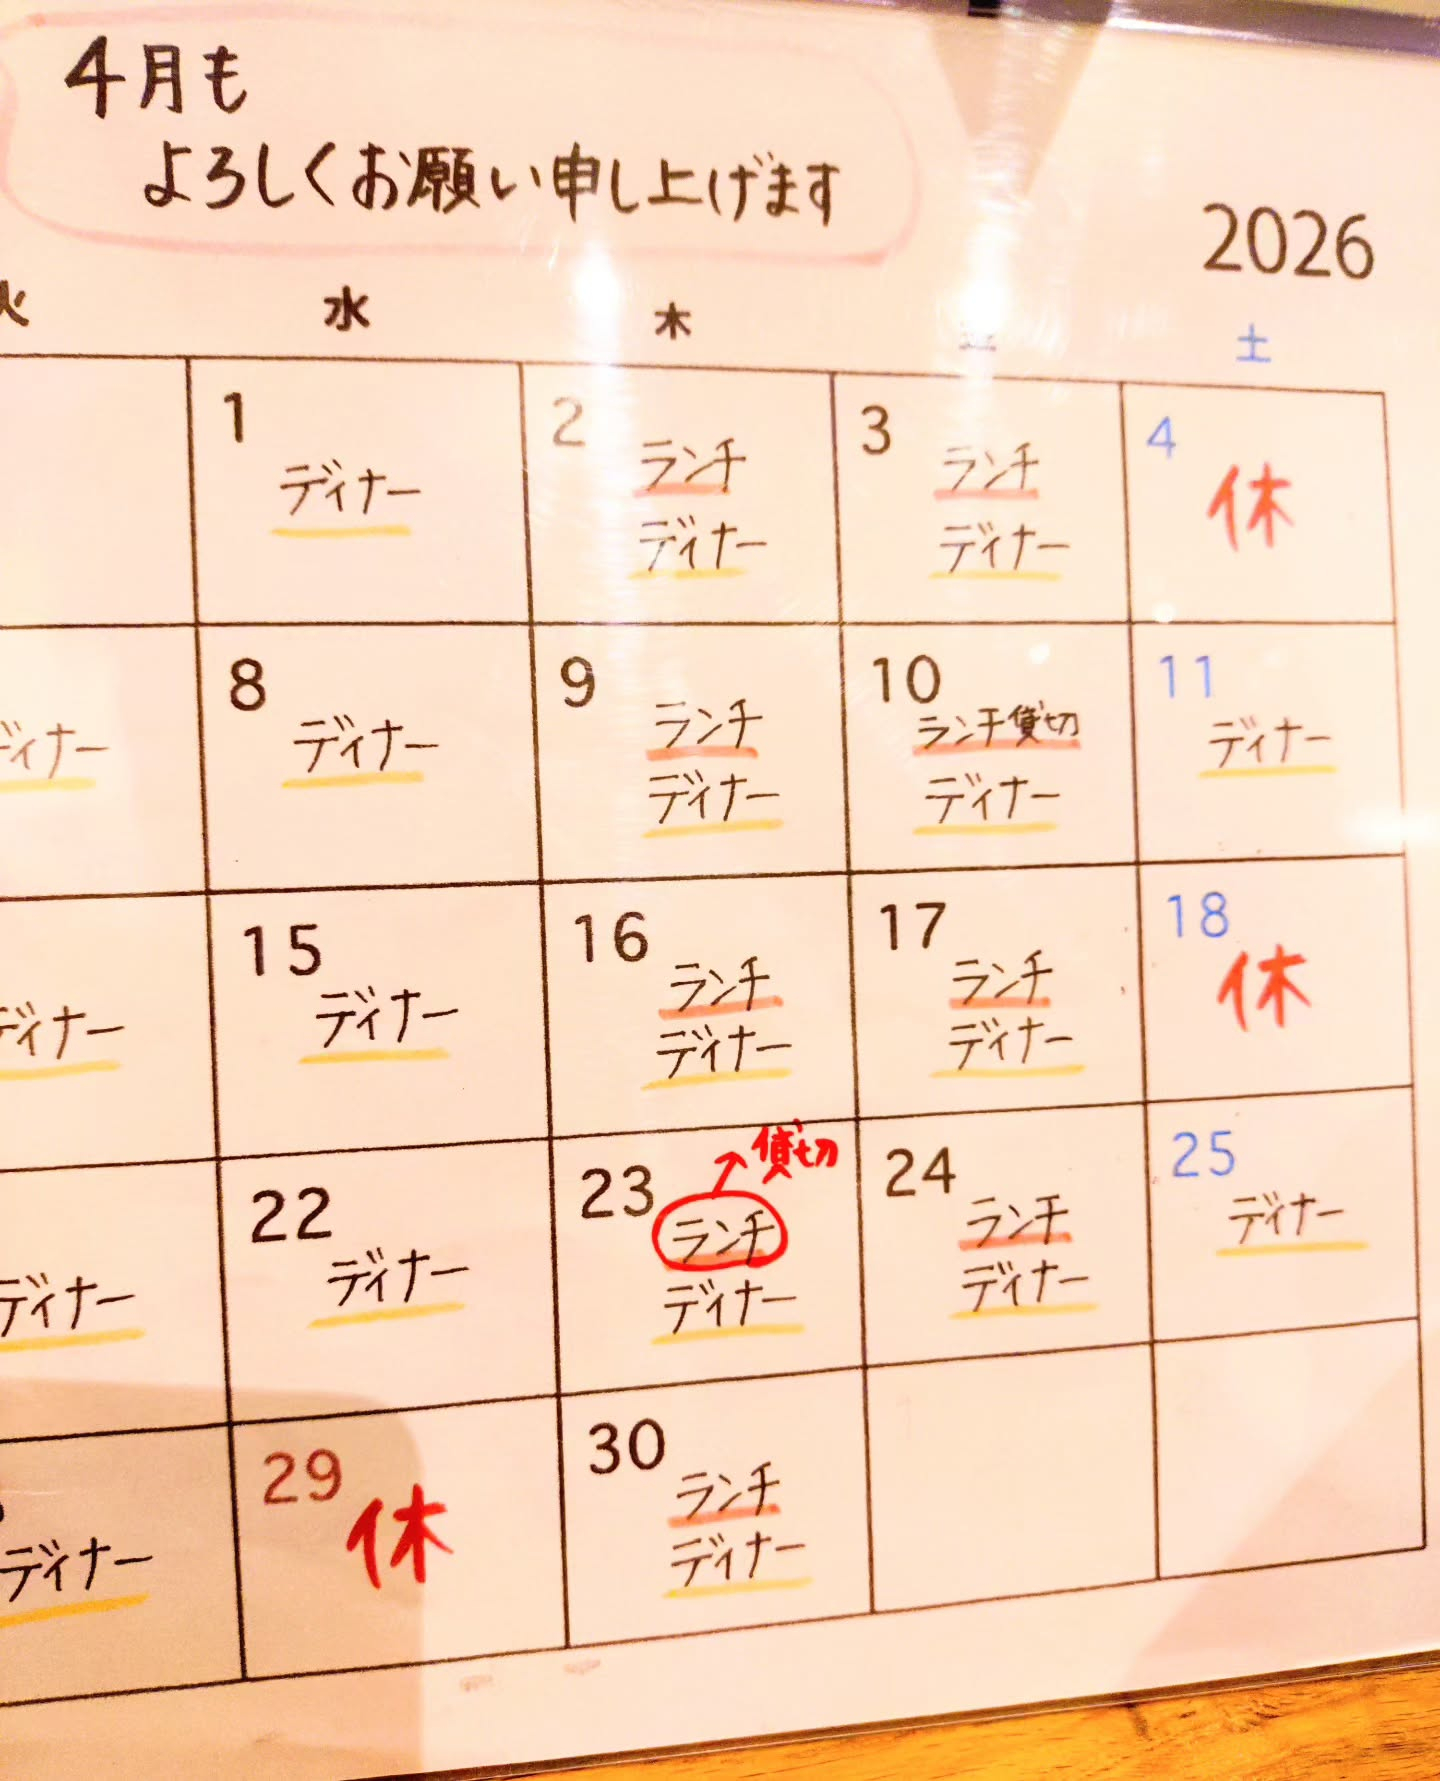 4月も
よろしくお願い申し上げます
2026
火 水 木 土
1 2 3 4
ディナー ランチ ランチ 休
ディナー ディナー
8 9 10 11
ディナー ディナー ランチ ランチ貸切 ディナー
ディナー ディナー
15 16 17 18
ディナー ディナー ランチ ランチ 休
ディナー ディナー
貸切
22 23 24 25
ディナー ディナー ランチ ランチ ディナー
ディナー ディナー
29 30
ディナー 休 ランチ
ディナー